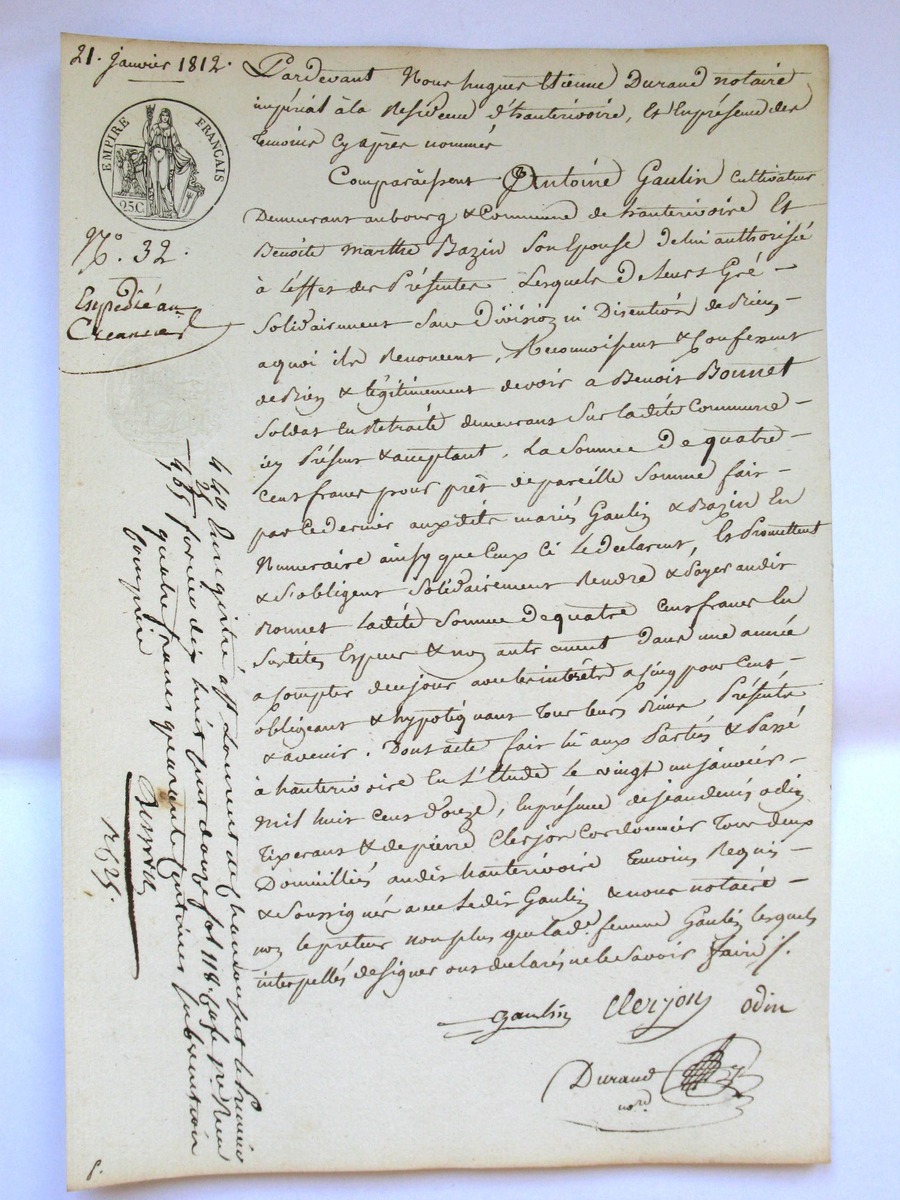 21. janvier 1812.
EMPIRE FRANÇAIS
25C
N.o 32.
Expédié au
Creancier
Pardevant Nous hugues Etienne Durand notaire
impérial à la Residence d'hauterivoire, Et En présence des
temoins cy après nommés
Comparoissent Antoine Gaulin Cultivateur
Demeurant au bourg & Commune de hauterivoire Et
Benoite Marthe Bazin Son Epouse de lui authorisée
à l'effet des Présentes Lesquels de leurs Gré
Solidairement Sans Division ni Discution de Biens
a quoi ils Renoncent, Reconnoissent & Confessent
de Bien & légitimement devoir a Benoit Bonnet
Soldat En Retraite demeurant Sur la dite Commune
icy Présent & acceptant. La Somme De quatre
Cent francs pour prêt de pareille Somme fait
par Ce dernier aux dits mariés Gaulin & Bazin En
Numeraire ainsy que Ceux Ci le declarent, Et Promettent
& S'obligent Solidairement Rendre & Payer audit
Bonnet la dite Somme de quatre Cent francs En
Susdites Especes & non autrement Dans une année
a Compter de ce jour avec les intérêts a Cinq pour Cent
obligeant & hypotéquant Tous leurs Biens Présents
& avenir. Dont acte fait lû aux Parties & Passé
à hauterivoire En L'Etude le vingt un janvier
Mil huit Cent Douze, En présence de jean denis odin
Tixerant & de pierre Clerjon Cordonnier Tous deux
Domiciliés audit hauterivoire temoins Requis
& Soussignés avec Ledit Gaulin & nous notaire
non le preteur non plus que lade femme Gaulin lesquels
interpellés de signer ont déclarés ne le Savoir faire /.
Gaulin Clerjon odin
Durand
nore
4 40 Enregistré à St Laurent de Chamousset le
4 65 fevrier dix huit cent douze fol 118. Reçu
quatre francs quarante Centimes Subvention
Comprise